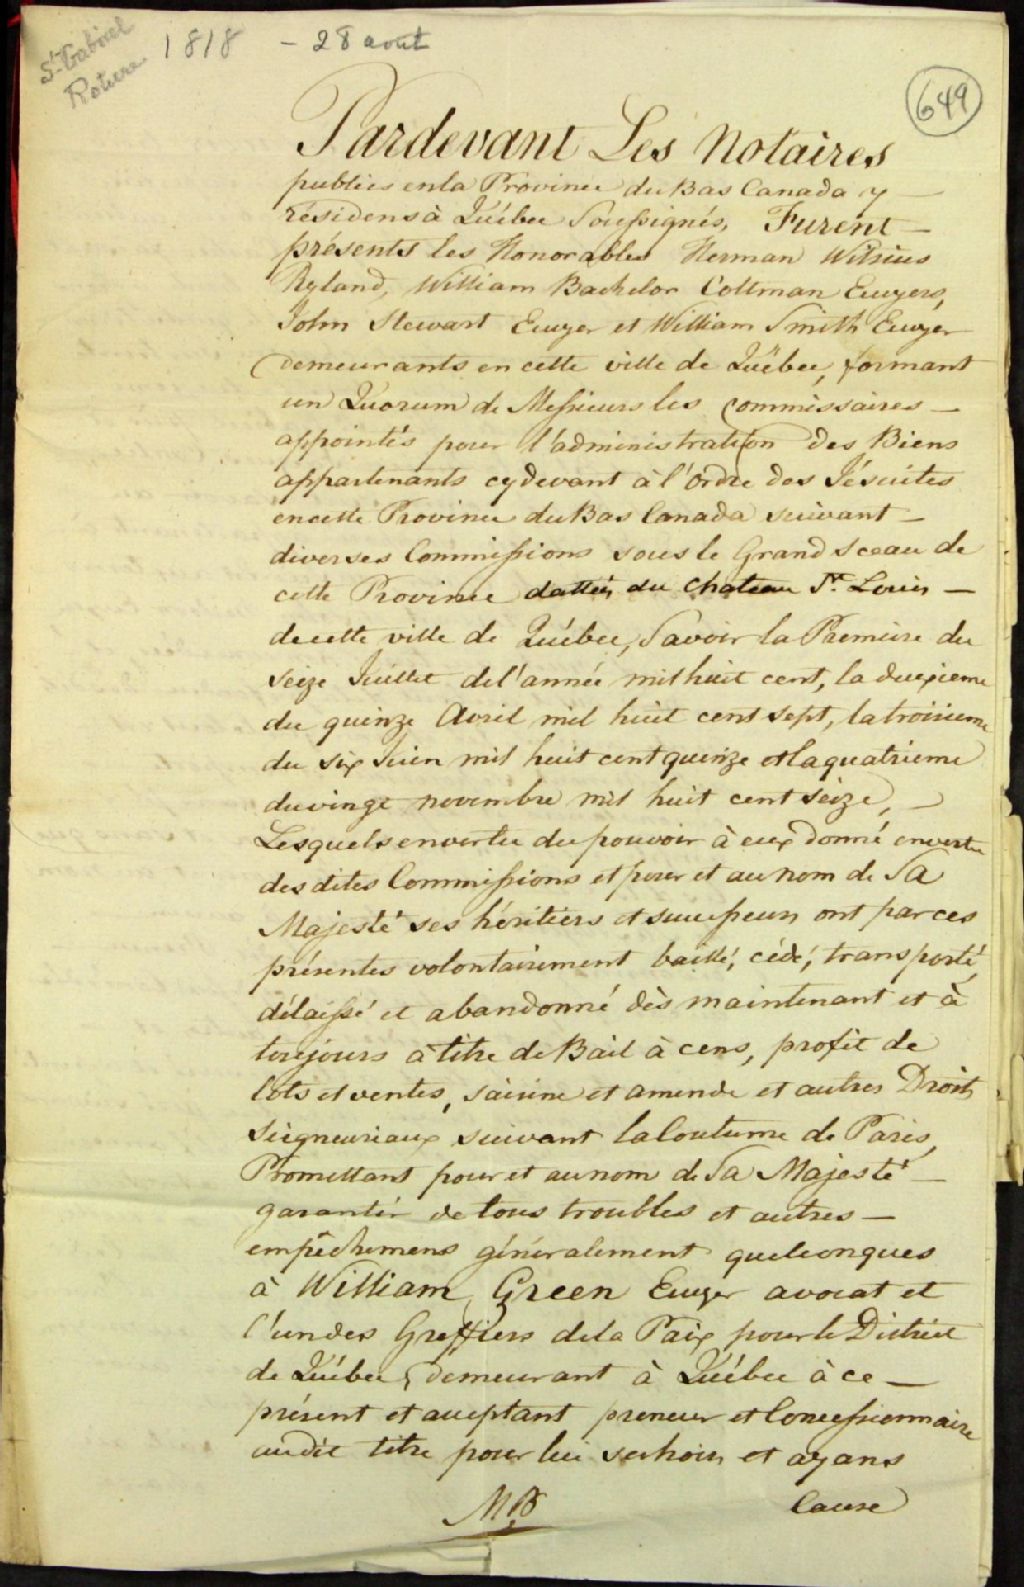 St Gabriel
Roture
1818 - 28 aout
649
Pardevant Les Notaires
publics en la Province du Bas Canada y —
résidens à Québec Soussignés, Furent —
présents les Honorables Herman Witsius
Ryland, William Bachelor Coltman Ecuyers,
John Stewart Ecuyer et William Smith Ecuyer
demeurants en cette ville de Québec, formant
un Quorum de Messieurs les Commissaires —
appointés pour l'administration des Biens
appartenants cydevant à l'ordre des Jésuites
en cette Province du Bas Canada suivant —
diverses Commissions sous le Grand Sceau de
cette Province dattées du Chateau St. Louis —
de cette ville de Québec, Savoir la Premiere du
Seize Juillet de l'année mil huit cent, la deuxieme
du quinze Avril mil huit cent sept, la troisieme
du six Juin mil huit cent quinze et la quatrieme
du vingt novembre mil huit cent seize, —
Lesquels en vertu du pouvoir à eux donné en vertu
des dites Commissions et pour et au nom de Sa
Majesté ses héritiers et successeurs ont par ces
présentes volontairement baillé, cédé, transporté,
délaissé et abandonné dès maintenant et à
toujours à titre de Bail à cens, profit de
lots et ventes, saisine et amende et autres Droits
Seigneuriaux suivant la Coutume de Paris,
Promettant pour et au nom de Sa Majesté —
garantir de tous troubles et autres —
empêchemens généralement quelconques
à William Green Ecuyer avocat et
l'un des Greffiers de la Paix pour le District
de Québec, demeurant à Québec à ce —
présent et acceptant preneur et Concessionnaire
audit titre pour lui ses hoirs et ayans
Cause